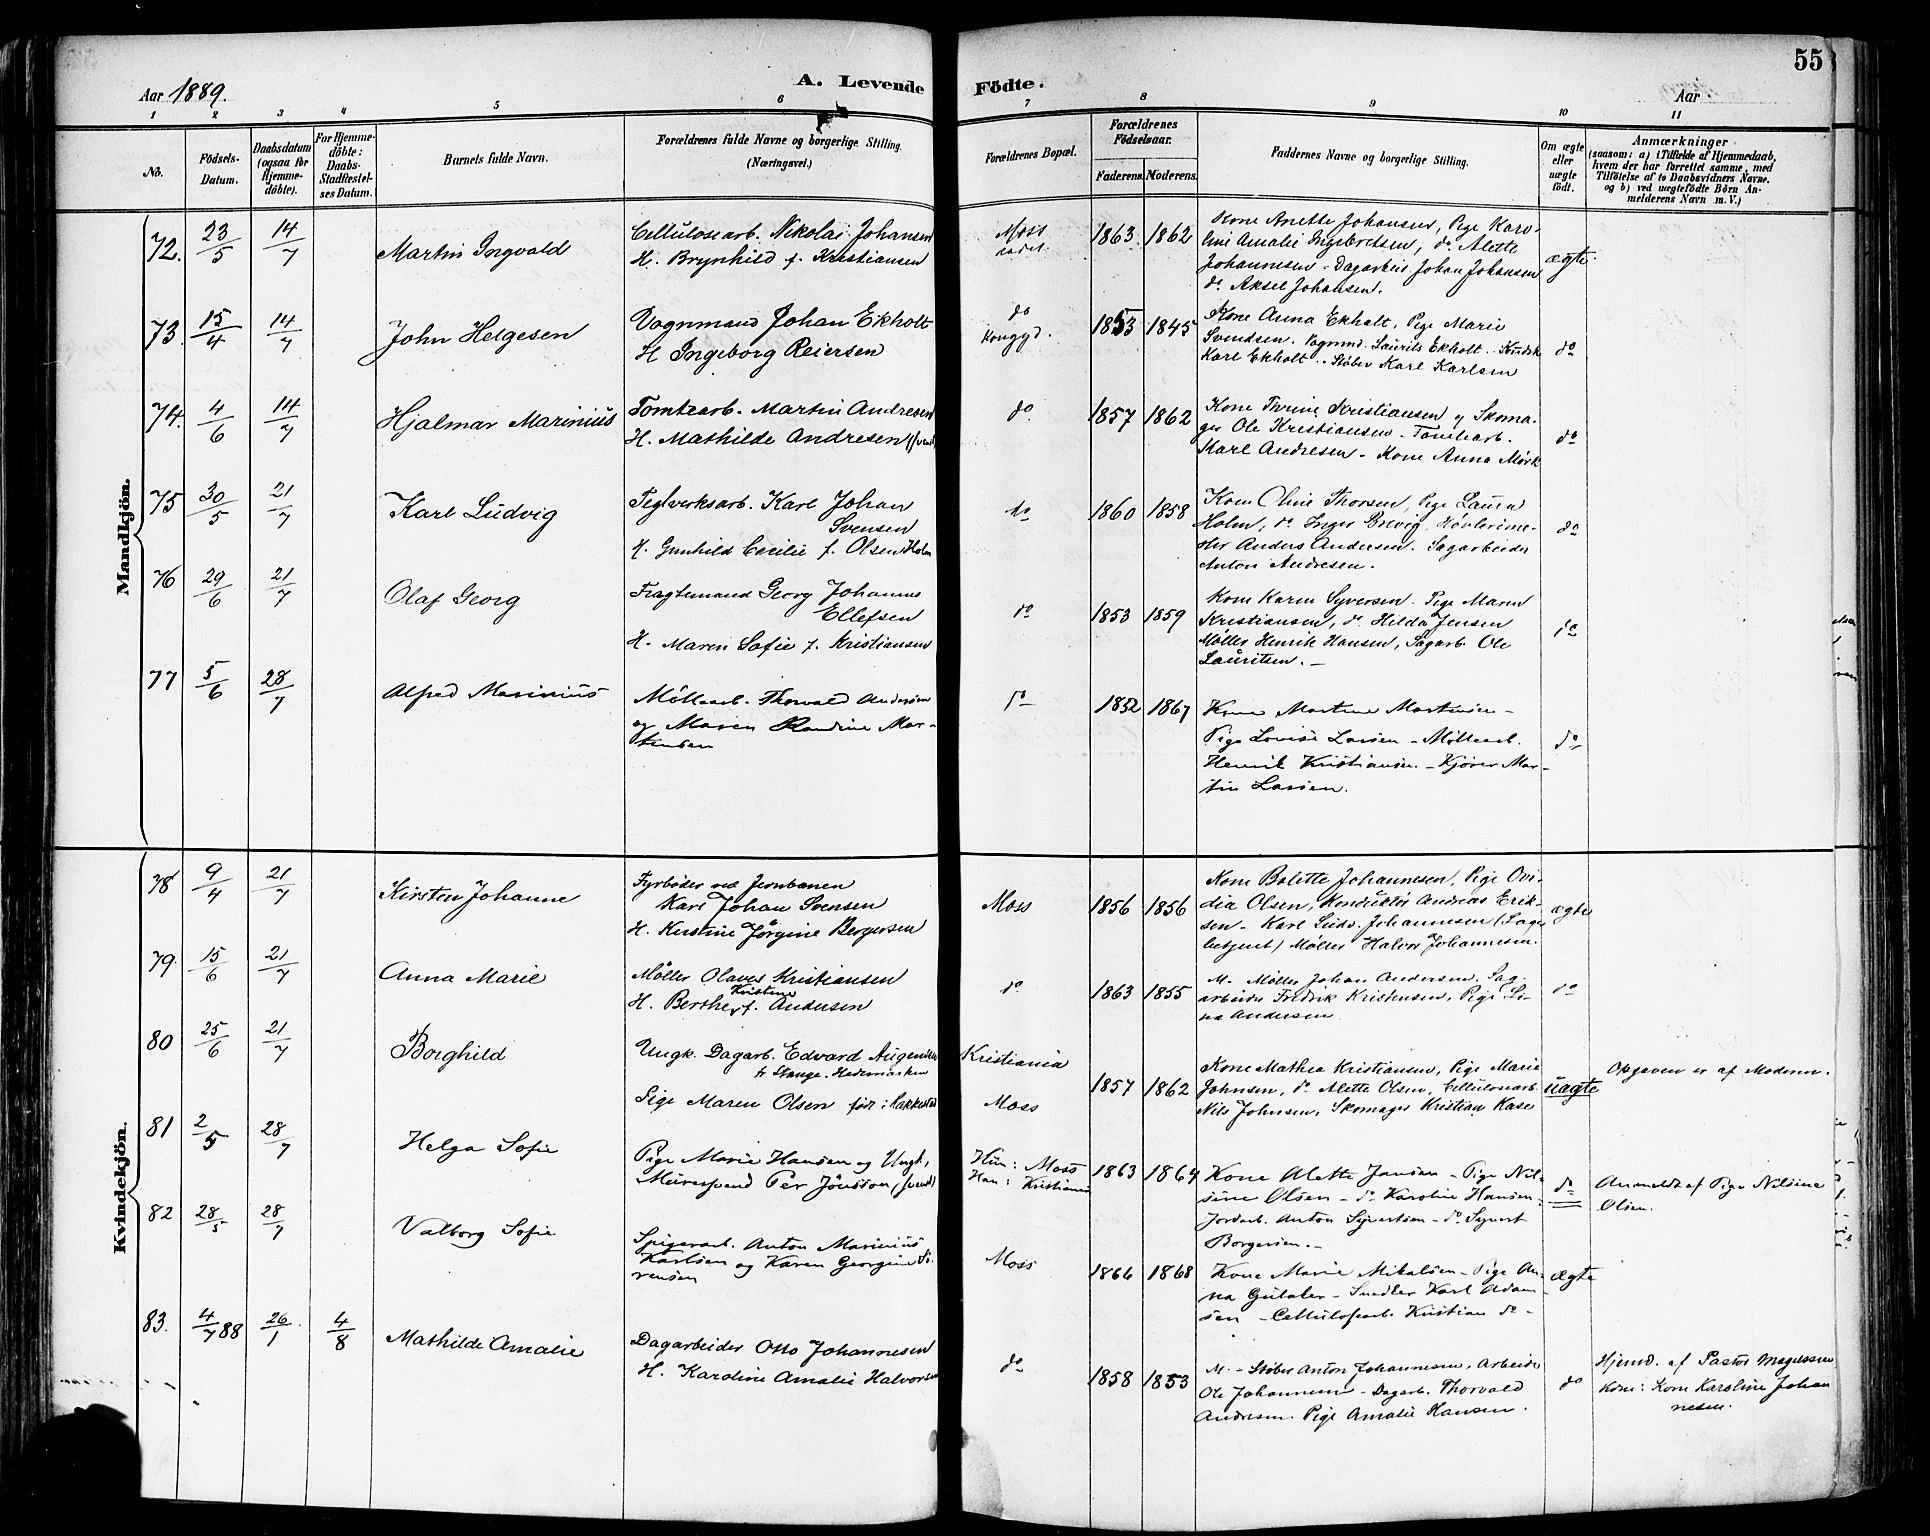 55
Aar 1889.
A. Levende
Födte.
Aar
1 2 3 4 5 6 7 8 9 10 11
No.
Födsels-
Datum.
Daabsdatum
(ogsaa för
Hjemme-
döbte).
For Hjemme-
döbte:
Daabs-
Stadfæstel-
ses Datum.
Barnets fulde Navn.
Forældrenes fulde Navne og borgerlige Stilling.
(Næringsvei.)
Forældrenes Bopæl.
Forældrenes
Födselsaar.
Faderens. Moderens.
Faddernes Navne og borgerlige Stilling.
Om ægte
eller
uægte
födt.
Anmærkninger
(saasom: a) i Tilfælde af Hjemmedaab,
hvem der har forrettet samme, med
Tilföielse af to Daabsvidners Navne,
og b) ved uægtefödte Börn An-
melderens Navn m. V.)
Mandkjön.
72. 23/5 14/7 Martin Ingvald
Cellulosearb. Nikolai Johansen
H. Brynhild f. Kristiansen
Moss
1863. 1862
Kone Anette Johansen, Pige Karo-
line Amalie Ingebretsen, do Alette
Johannesen - Dagarbeid. Johan Johansen
do Aksel Johansen.
ægte
73. 15/4 14/7 John Helgesen
Vognmand Johan Ekholt
H Ingeborg Reiersen
do
1853 1845
Kone Anna Ekholt, Pige Marie
Svendsen. Vognmd. Laurits Ekholt. Kudsk
Karl Ekholt. Støber Karl Karlsen
do
74. 4/6 14/7 Hjalmar Marinius
Tomtearb. Martin Andresen
H. Mathilde Andresen (svensk)
do
1857 1862
Kone Thrine Kristiansen og Skoma-
ger Ole Kristiansen - Tomtearb.
Karl Andresen - Kone Anna Mørk
do
75 30/5 21/7 Karl Ludvig
Teglverksarb. Karl Johan
Svensen
H. Gunhild Cecilie f. Olsen Holm
do
1860 1858
Kone Oline Thorsen, Pige Laura
Holm, do Inger Brevig, Høvlerime-
ster Anders Andersen. Sagarbeider
Anton Andresen.
do
76 29/6 21/7 Olaf Georg
Fragtemand Georg Johannes
Ellefsen
H. Maren Sofie f. Kristiansen
do
1853 1859
Kone Karen Syversen. Pige Maren
Kristiansen, do Hilda Jensen
Møller Henrik Hansen, Sagarb. Ole
Lauritsen. -
do
77 5/6 28/7 Alfred Marinius
Møllearb. Thorvald Andersen
og Maren Randine Mar-
tinsen
do
1852 1867
Kone Martine Martinsen -
Pige Lovise Larsen - Møllearb.
Henrik Kristiansen. - Kjører Mar-
tin Larsen.
do
Kvindekjön.
78 9/4 21/7 Kirsten Johanne
Fyrbøder ved Jernbanen
Karl Johan Svensen
H. Kirstine Jørgine Bergersen
Moss
1856 1856
Kone Bolette Johannesen, Pige Ovi-
dia Olsen, Konduktør Andreas Erik-
sen - Karl Ludv. Johannesen (Sag-
betjent) Møller Halvor Johannesen.
ægte
79. 15/6 21/7 Anna Marie
Møller Olaves Kristiansen
Kristine
H. Berthe f. Andersen
do
1863 1855
M. Møller Johan Andersen, Sag-
arbeider Fredrik Kristensen, Pige Li-
na Andersen
do
80 25/6 21/7 Borghild
Ungk. Dagarb. Edvard Augensen
fr Stange. Hedemarken
Pige Maren Olsen født i Rakkestad
Kristiania
Moss
1857 1862
Kone Mathea Kristiansen, Pige Marie
Johnsen, do Alette Olsen, Cellulosearb.
Nils Johnsen, Skomager Kristian Kase
uægte
Opgaven er af Moderen.
81 2/5 28/7 Helga Sofie
Pige Marie Hansen og Ungk.
Murersvend Per Jönsson (svensk)
Hun: Moss
Han: Kristiania
1863 1864
Kone Alette Jansen - Pige Nil-
sine Olsen - do Karoline Hansen -
Jordarb. Anton Syvertsen - do Syvert
Borgersen. -
do
Anmeldt af Pige Nilsine
Olsen.
82 28/5 28/7 Valborg Sofie
Spigerarb. Anton Marinius
Karlsen og Karen Georgine Sö-
rensen
Moss
1866 1868
Kone Marie Mikalsen - Pige An-
na Gulaker - Snedker Karl Adam-
sen - Cellulosearb. Kristian do -
ægte
83. 4/7 88 26/1 4/8 Mathilde Amalie
Dagarbeider Otto Johannesen
H. Karoline Amalie Halvorsen
do
1858 1853
M. - Støber Anton Johannesen, Arbeider
Ole Johannesen - Dagarb. Thorvald
Andresen. Pige Amalie Hansen.
do
Hjemd. af Pastor Magelssen
Kone Karoline Johan
nesen.